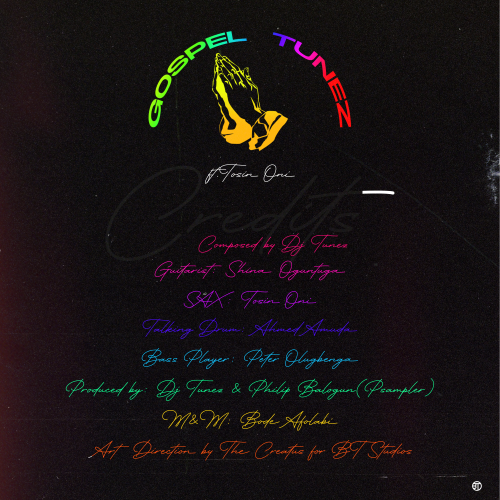 GOSPEL TUNEZ
ft. Tosin Oni
Credits
Composed by Dj Tunez
Guitarist: Shina Oguntuga
SAX: Tosin Oni
Talking Drum: Ahmed Amuda
Bass Player: Peter Olugbenga
Produced by: Dj Tunez & Philip Balogun(Psampler)
M&M: Bode Afolabi
Art Direction by The Creatus for BT Studios